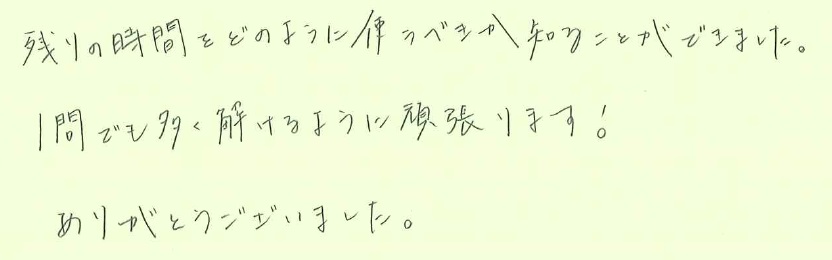 残りの時間をどのように使うべきか知ることができました。
1問でも多く解けるように頑張ります!
ありがとうございました。